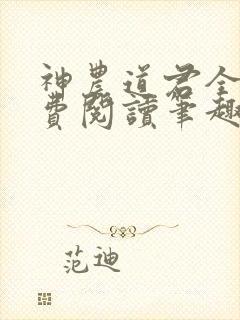 神農道君全
費閱讀筆趣
范迪